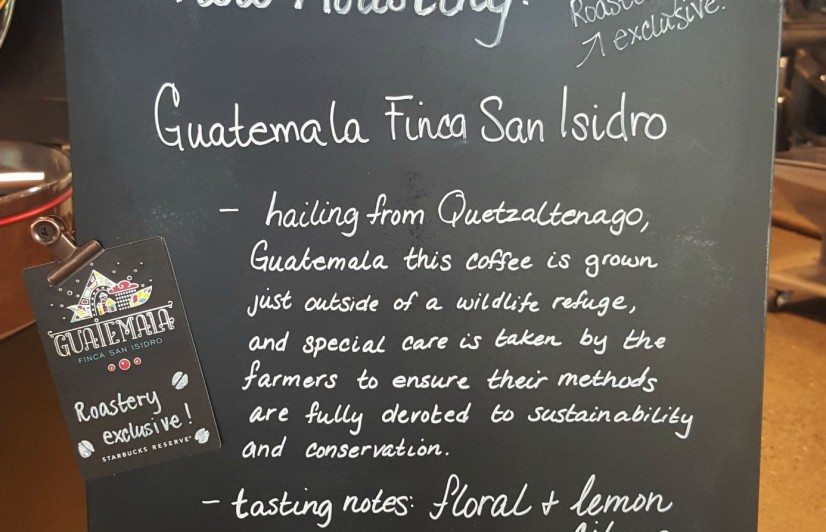 Now Roasting!
Roastery
↗ exclusive!
Guatemala Finca San Isidro
- hailing from Quetzaltenago,
Guatemala this coffee is grown
just outside of a wildlife refuge,
and special care is taken by the
farmers to ensure their methods
are fully devoted to sustainability
and conservation.
- tasting notes: floral + lemon
GUATEMALA
FINCA SAN ISIDRO
Roastery
exclusive!
STARBUCKS RESERVE®